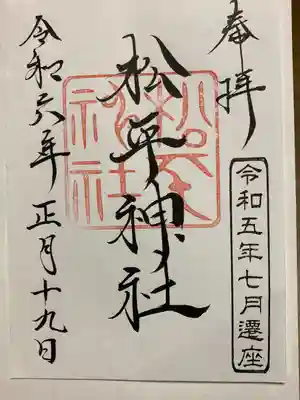 奉拝
令和五年七月遷座
松平神社
令和六年 正月十九日